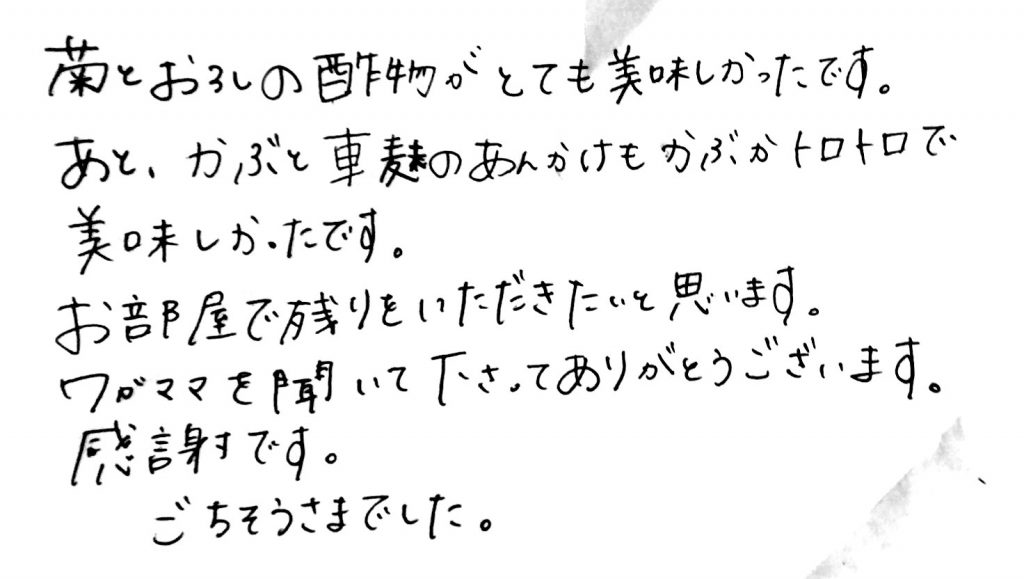 菊とおろしの酢物がとても美味しかったです。
あと、かぶと車麩のあんかけもかぶがトロトロで
美味しかったです。
お部屋で残りをいただきたいと思います。
ワガママを聞いて下さってありがとうございます。
感謝です。
ごちそうさまでした。